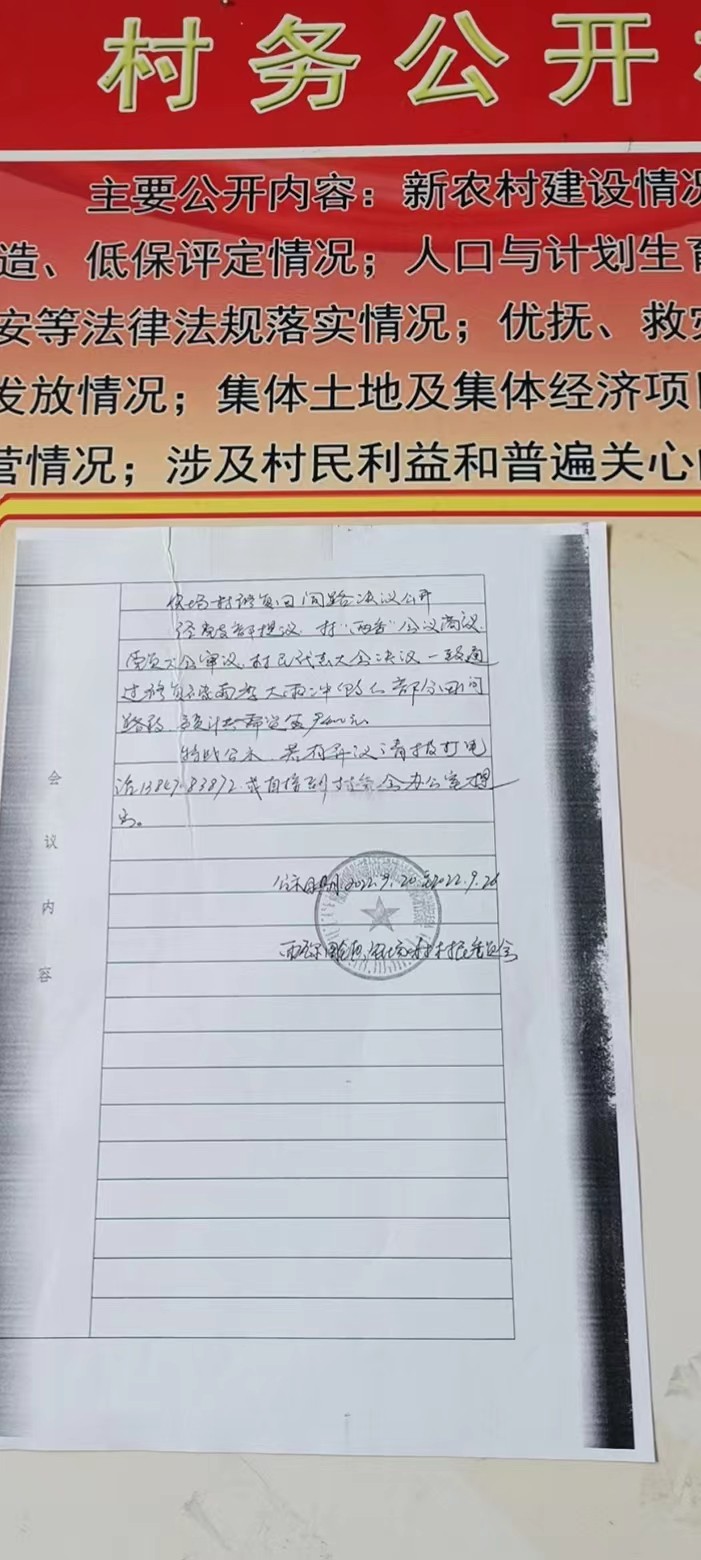 村务公开
主要公开内容：新农村建设情况
造、低保评定情况；人口与计划生育
安等法律法规落实情况；优抚、救灾
发放情况；集体土地及集体经济项目
营情况；涉及村民利益和普遍关心
会议内容
村修复田间路决议公开
经党支部提议、村"两委"会议商议、
党员大会审议、村民代表大会决议一致通
过修复雨季大雨冲毁的部分田间
路段，预计共需资金
特此公示，若有异议请拨打电
话或直接到村委会办公室提
出。
公示日期2022.9.20至2022.9.26
村村民委员会